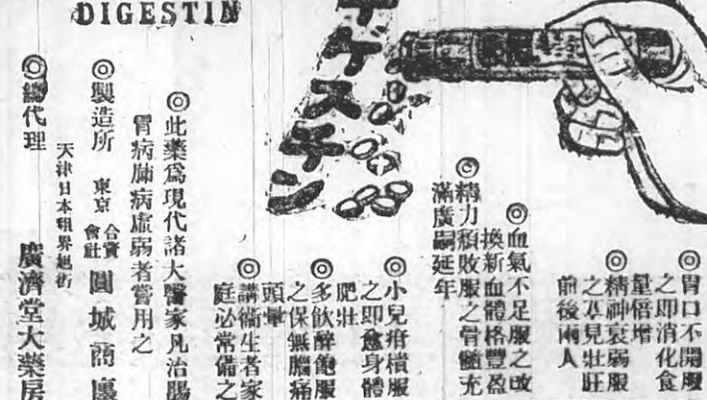 DIGESTIN
チゲスチン
胃口不開服
之即消化食
量倍增
◎精神衰弱服
之立見壯旺
前後兩人
◎血氣不足服之改
換新血體格豐盈
◎精力頹敗服之骨髓充
滿廣嗣延年
◎小兒疳積服
之即愈身體
肥壯
◎多飲醉飽服
之保無腦痛
頭暈
◎講衛生者家
庭必常備之
◎此藥爲現代諸大醫家凡治腸
胃病肺病虛弱者嘗用之
◎製造所 東京 合資會社 圓城商廛
◎總代理 天津日本租界旭街 廣濟堂大藥房